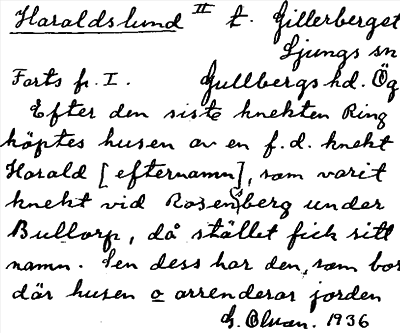 Haraldslund II t. Gillerberget
Ljungs sn
Forts fr. I. Gullbergs hd. Ög
Efter den siste knekten Ring
köptes husen av en f.d. knekt
Harald [efternamn], som varit
knekt vid Rosenberg under
Bullorp, då stället fick sitt
namn. Sen dess har den, som bor
där husen o arrenderar jorden
G. Olman. 1936